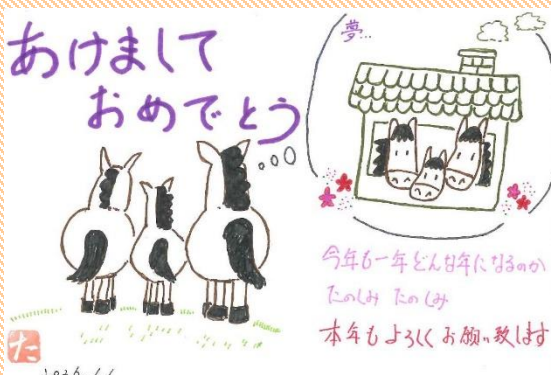 あけまして
おめでとう
夢…
今年も一年どんな年になるのか
たのしみ たのしみ
本年もよろしくお願い致します
た